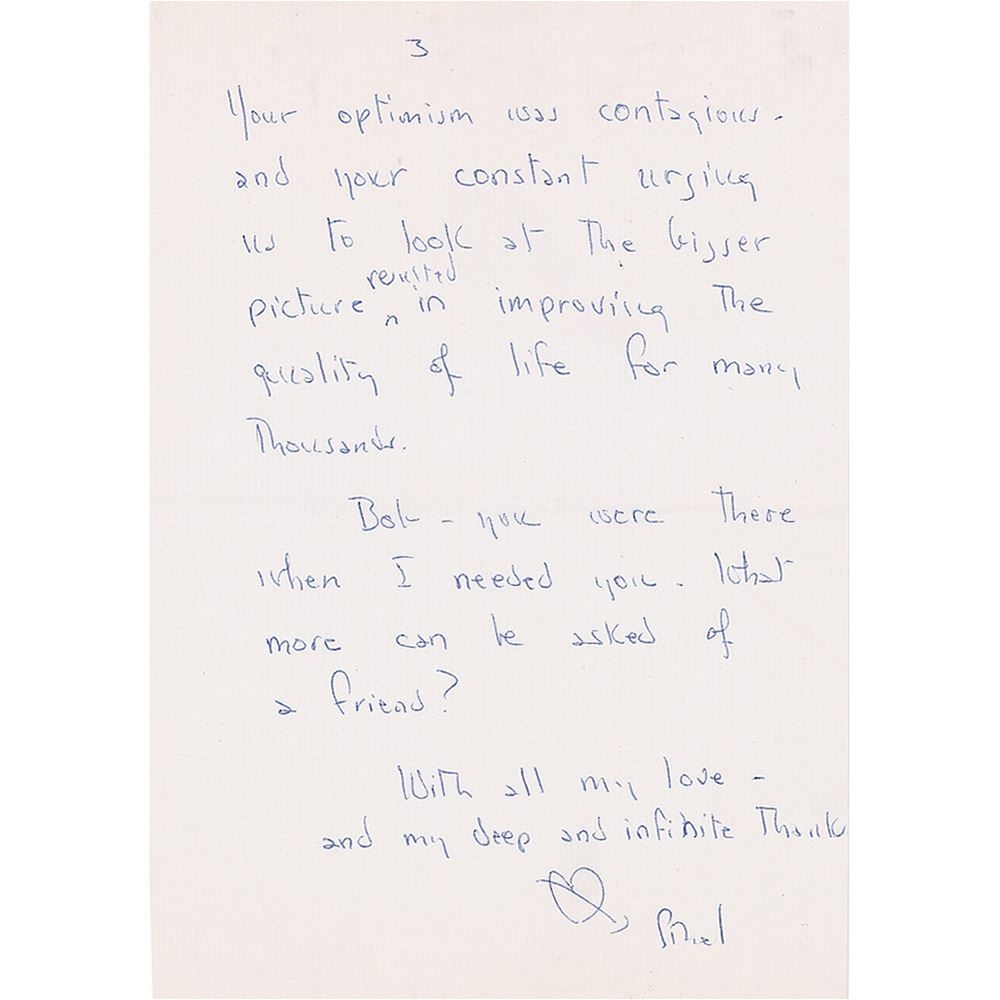 3
Your optimism was contagious -
and your constant urging
us to look at the bigger
resulted
picture in improving the
quality of life for many
thousands.
Bob - you were there
when I needed you. What
more can be asked of
a friend?
With all my love -
and my deep and infinite thanks